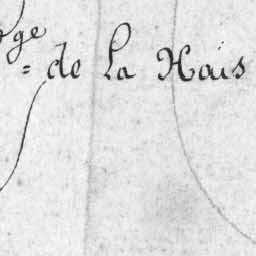 oge
= de La Hais